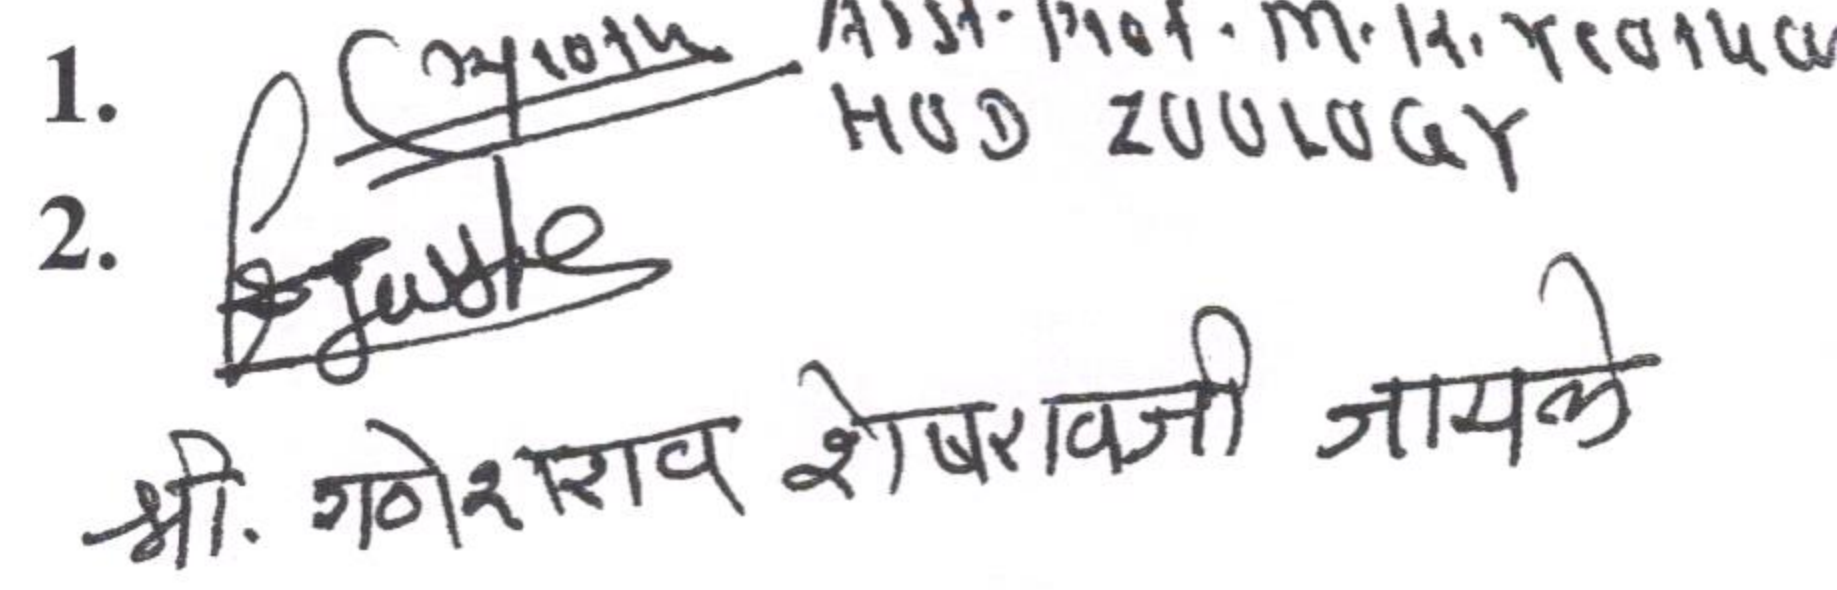 1. Asst. Prof. M. K.
HOD ZOOLOGY
2.
श्री. गणेशराव शेषरावजी जायले